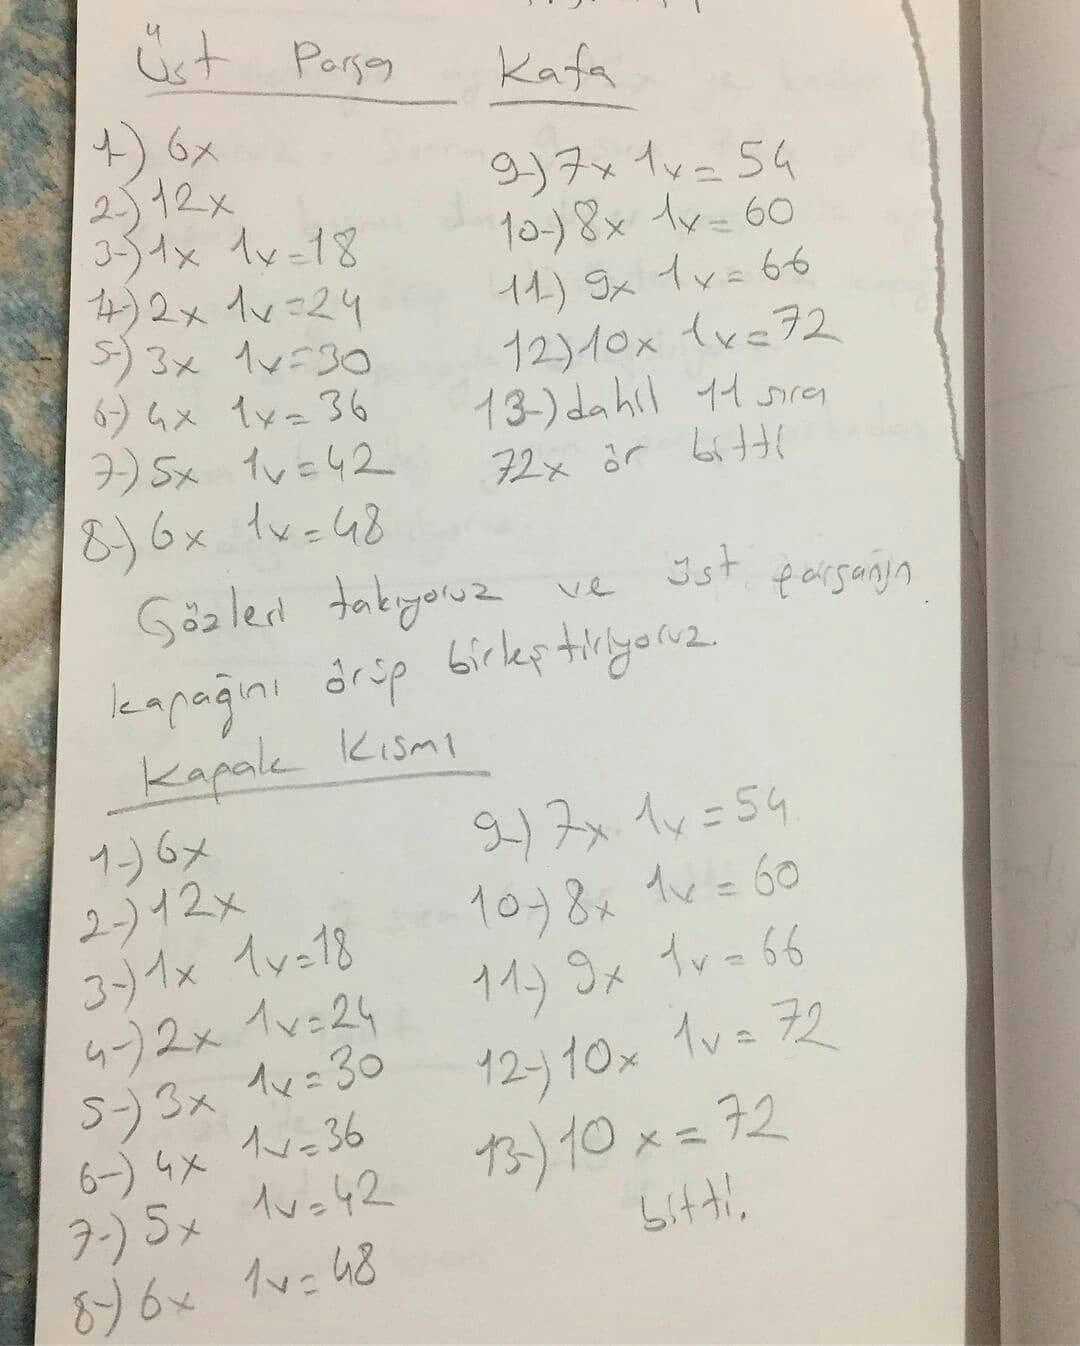 Üst Parça Kafa
1-) 6x
2-) 12x
3-) 1x 1v=18
4-) 2x 1v=24
5-) 3x 1v=30
6-) 4x 1v=36
7-) 5x 1v=42
8-) 6x 1v=48
9-) 7x 1v=54
10-) 8x 1v=60
11-) 9x 1v=66
12-) 10x 1v=72
13-) dahil 11 sıra
72x ör bitti
Gözleri takıyoruz ve üst parçanın
kapağını örüp birleştiriyoruz.
Kapak Kısmı
1-) 6x
2-) 12x
3-) 1x 1v=18
4-) 2x 1v=24
5-) 3x 1v=30
6-) 4x 1v=36
7-) 5x 1v=42
8-) 6x 1v=48
9-) 7x 1v=54
10-) 8x 1v=60
11-) 9x 1v=66
12-) 10x 1v=72
13-) 10x=72
bitti.